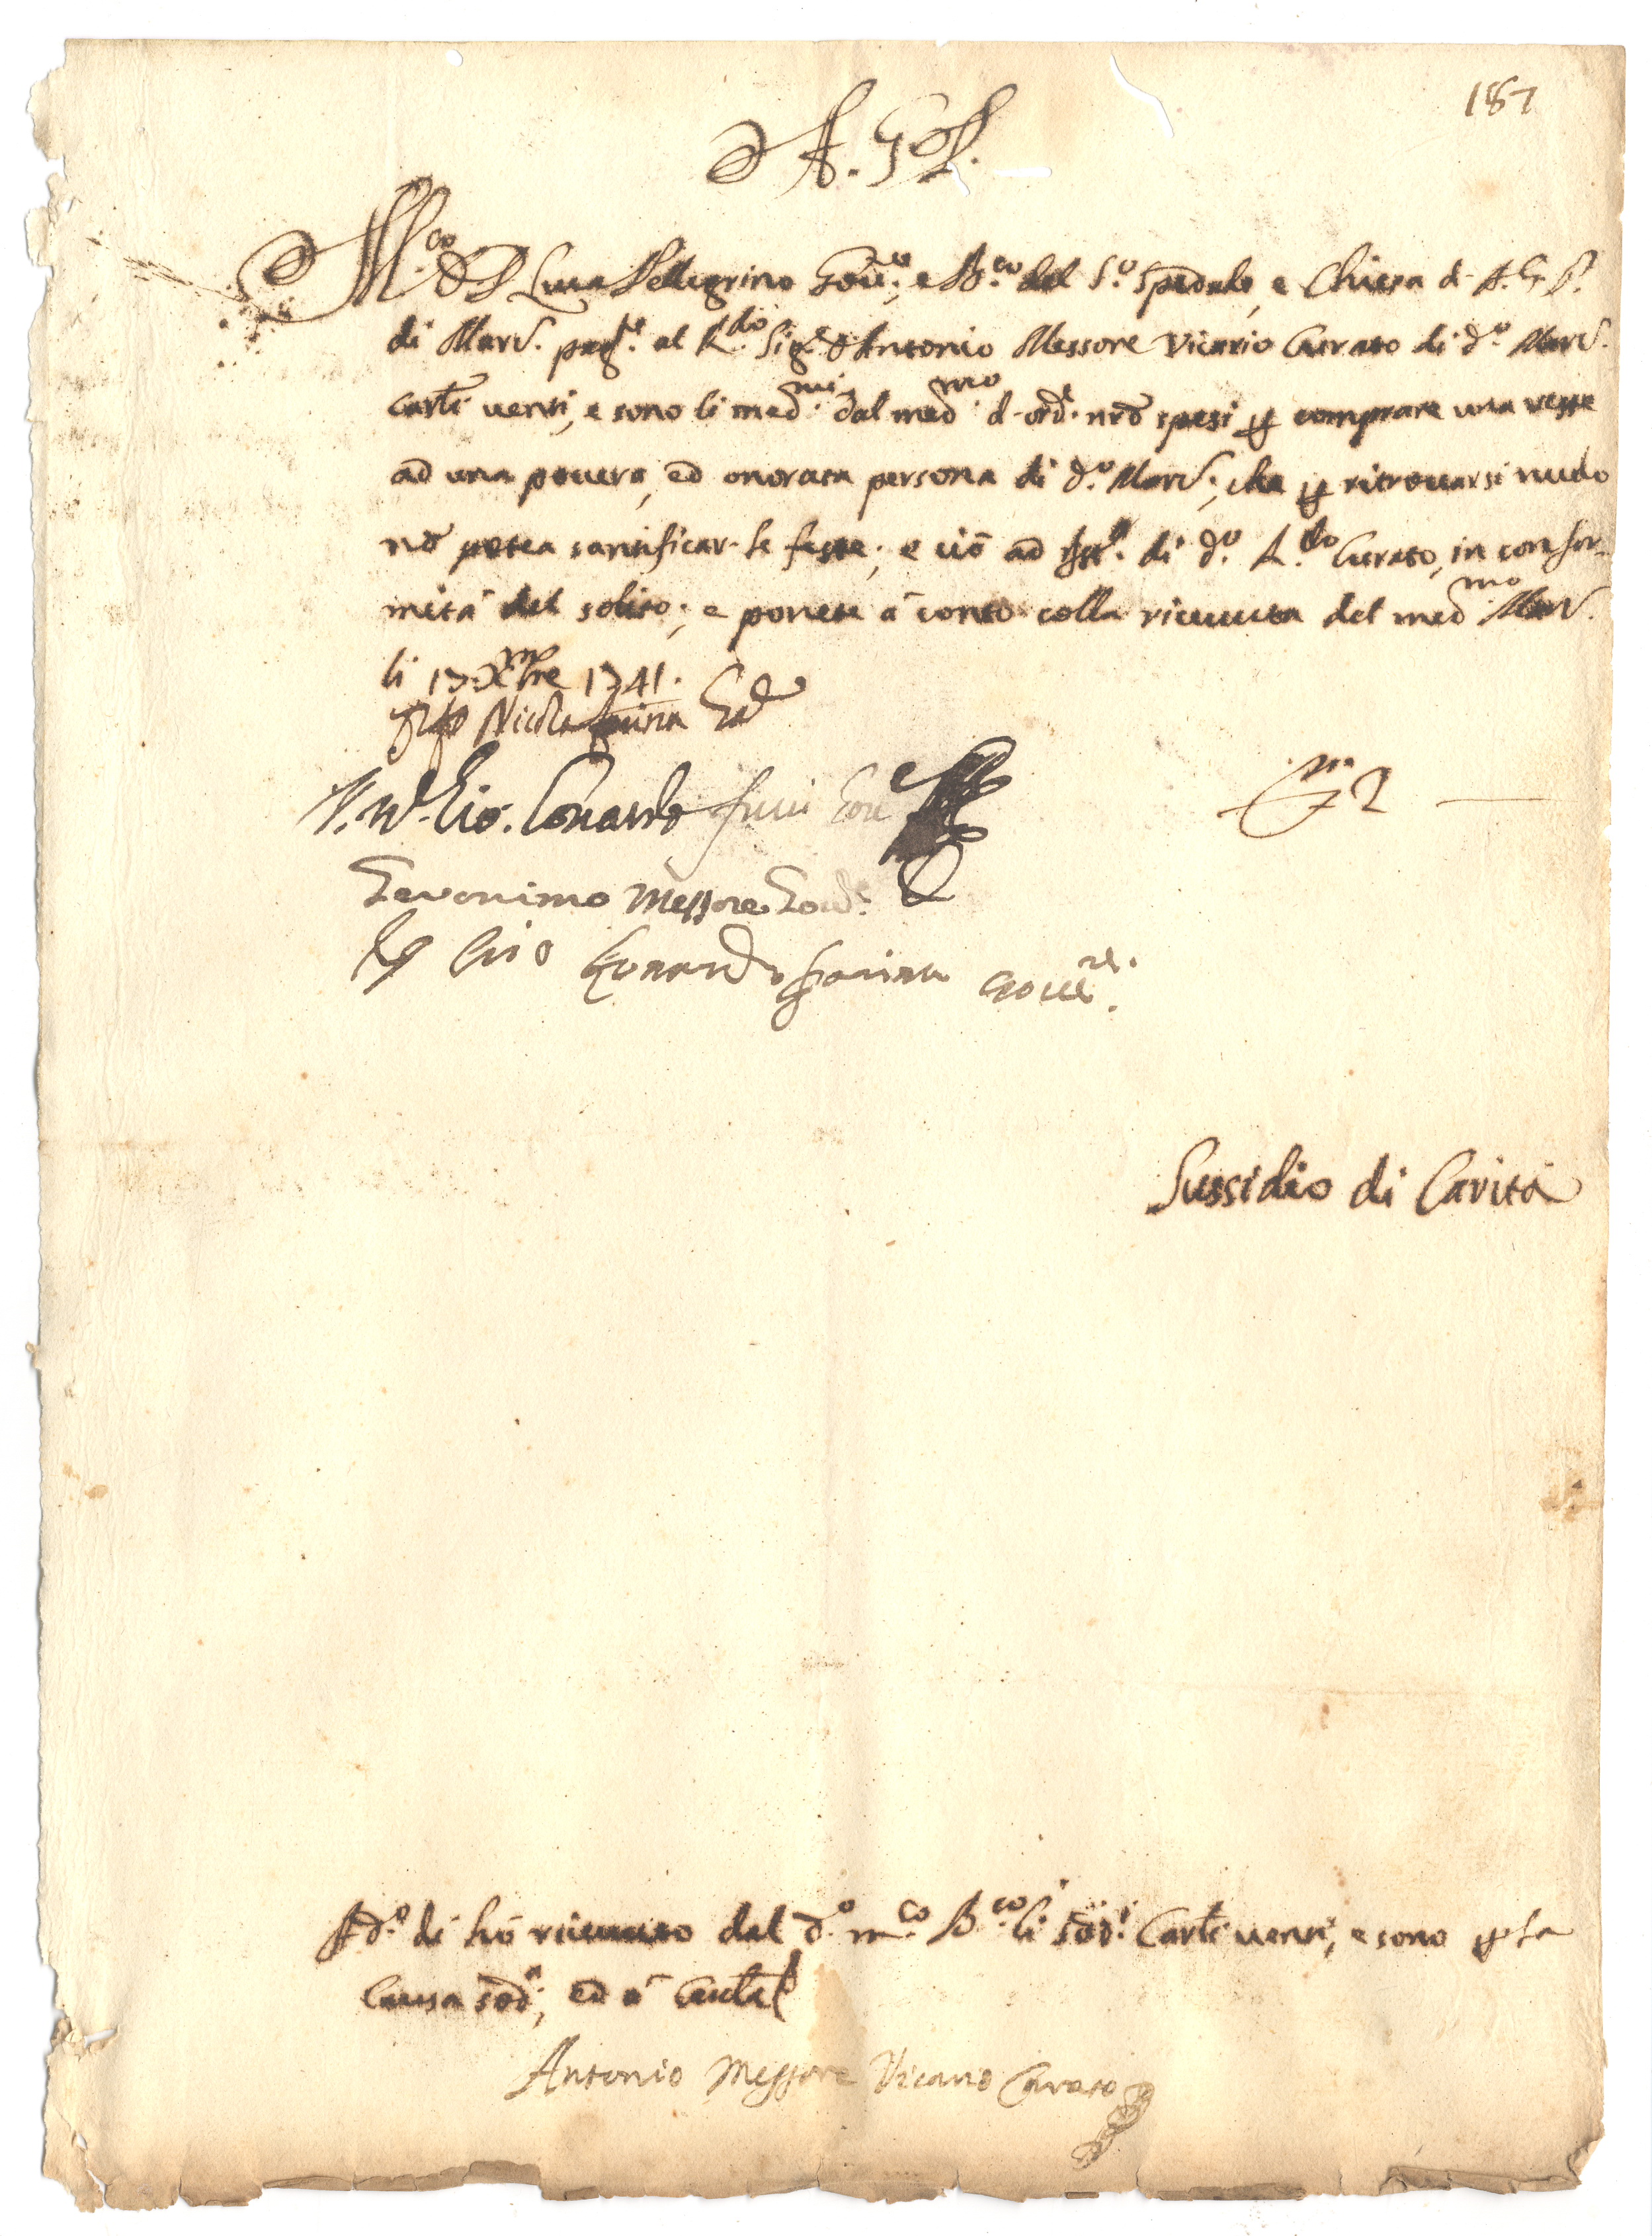 187
A. G. P.
M.co D. Luca Pellegrino Gov.e, e B.co del S.o Spedale, e Chiesa d. A. G. P.
di Mard. pag.te al R.do Sig.r D. Antonio Messore Vicario Curato di d.o Mard.
Carli venti, e sono li med.mi dal med.mo d. ord.e nro spesi p comprare una veste
ad una povera, ed onorata persona di d.o Mard., che p ritrovarsi nudo
nō potea santificar le feste; e ciò ad di d.o R.do Curato, in confor-
mità del solito; e ponete à conto colla ricevuta del med.mo Mard.
li 17 Xmbre 1741.
Nicola Farina
Gio. Lonardo
Geronimo Messore Gov.e
Gio Lonardo Farina Gove.re
2
Sussidio di Carità
Ad.o di hò ricevuto dal d.o m.co B.co li sod.i Carli venti, e sono p la
Causa sod.a, ed à cautel
Antonio Messore Vicario Curato